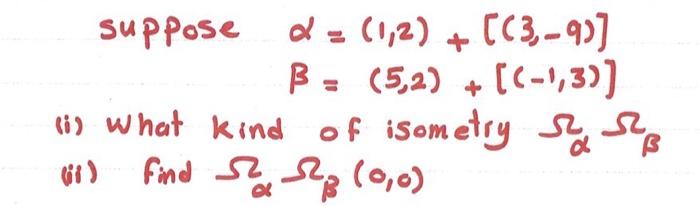 suppose α = (1,2) + [(3,-9)]
β = (5,2) + [(-1,3)]
(i) What kind of isometry Ω_α Ω_β
(ii) find Ω_α Ω_β (0,0)